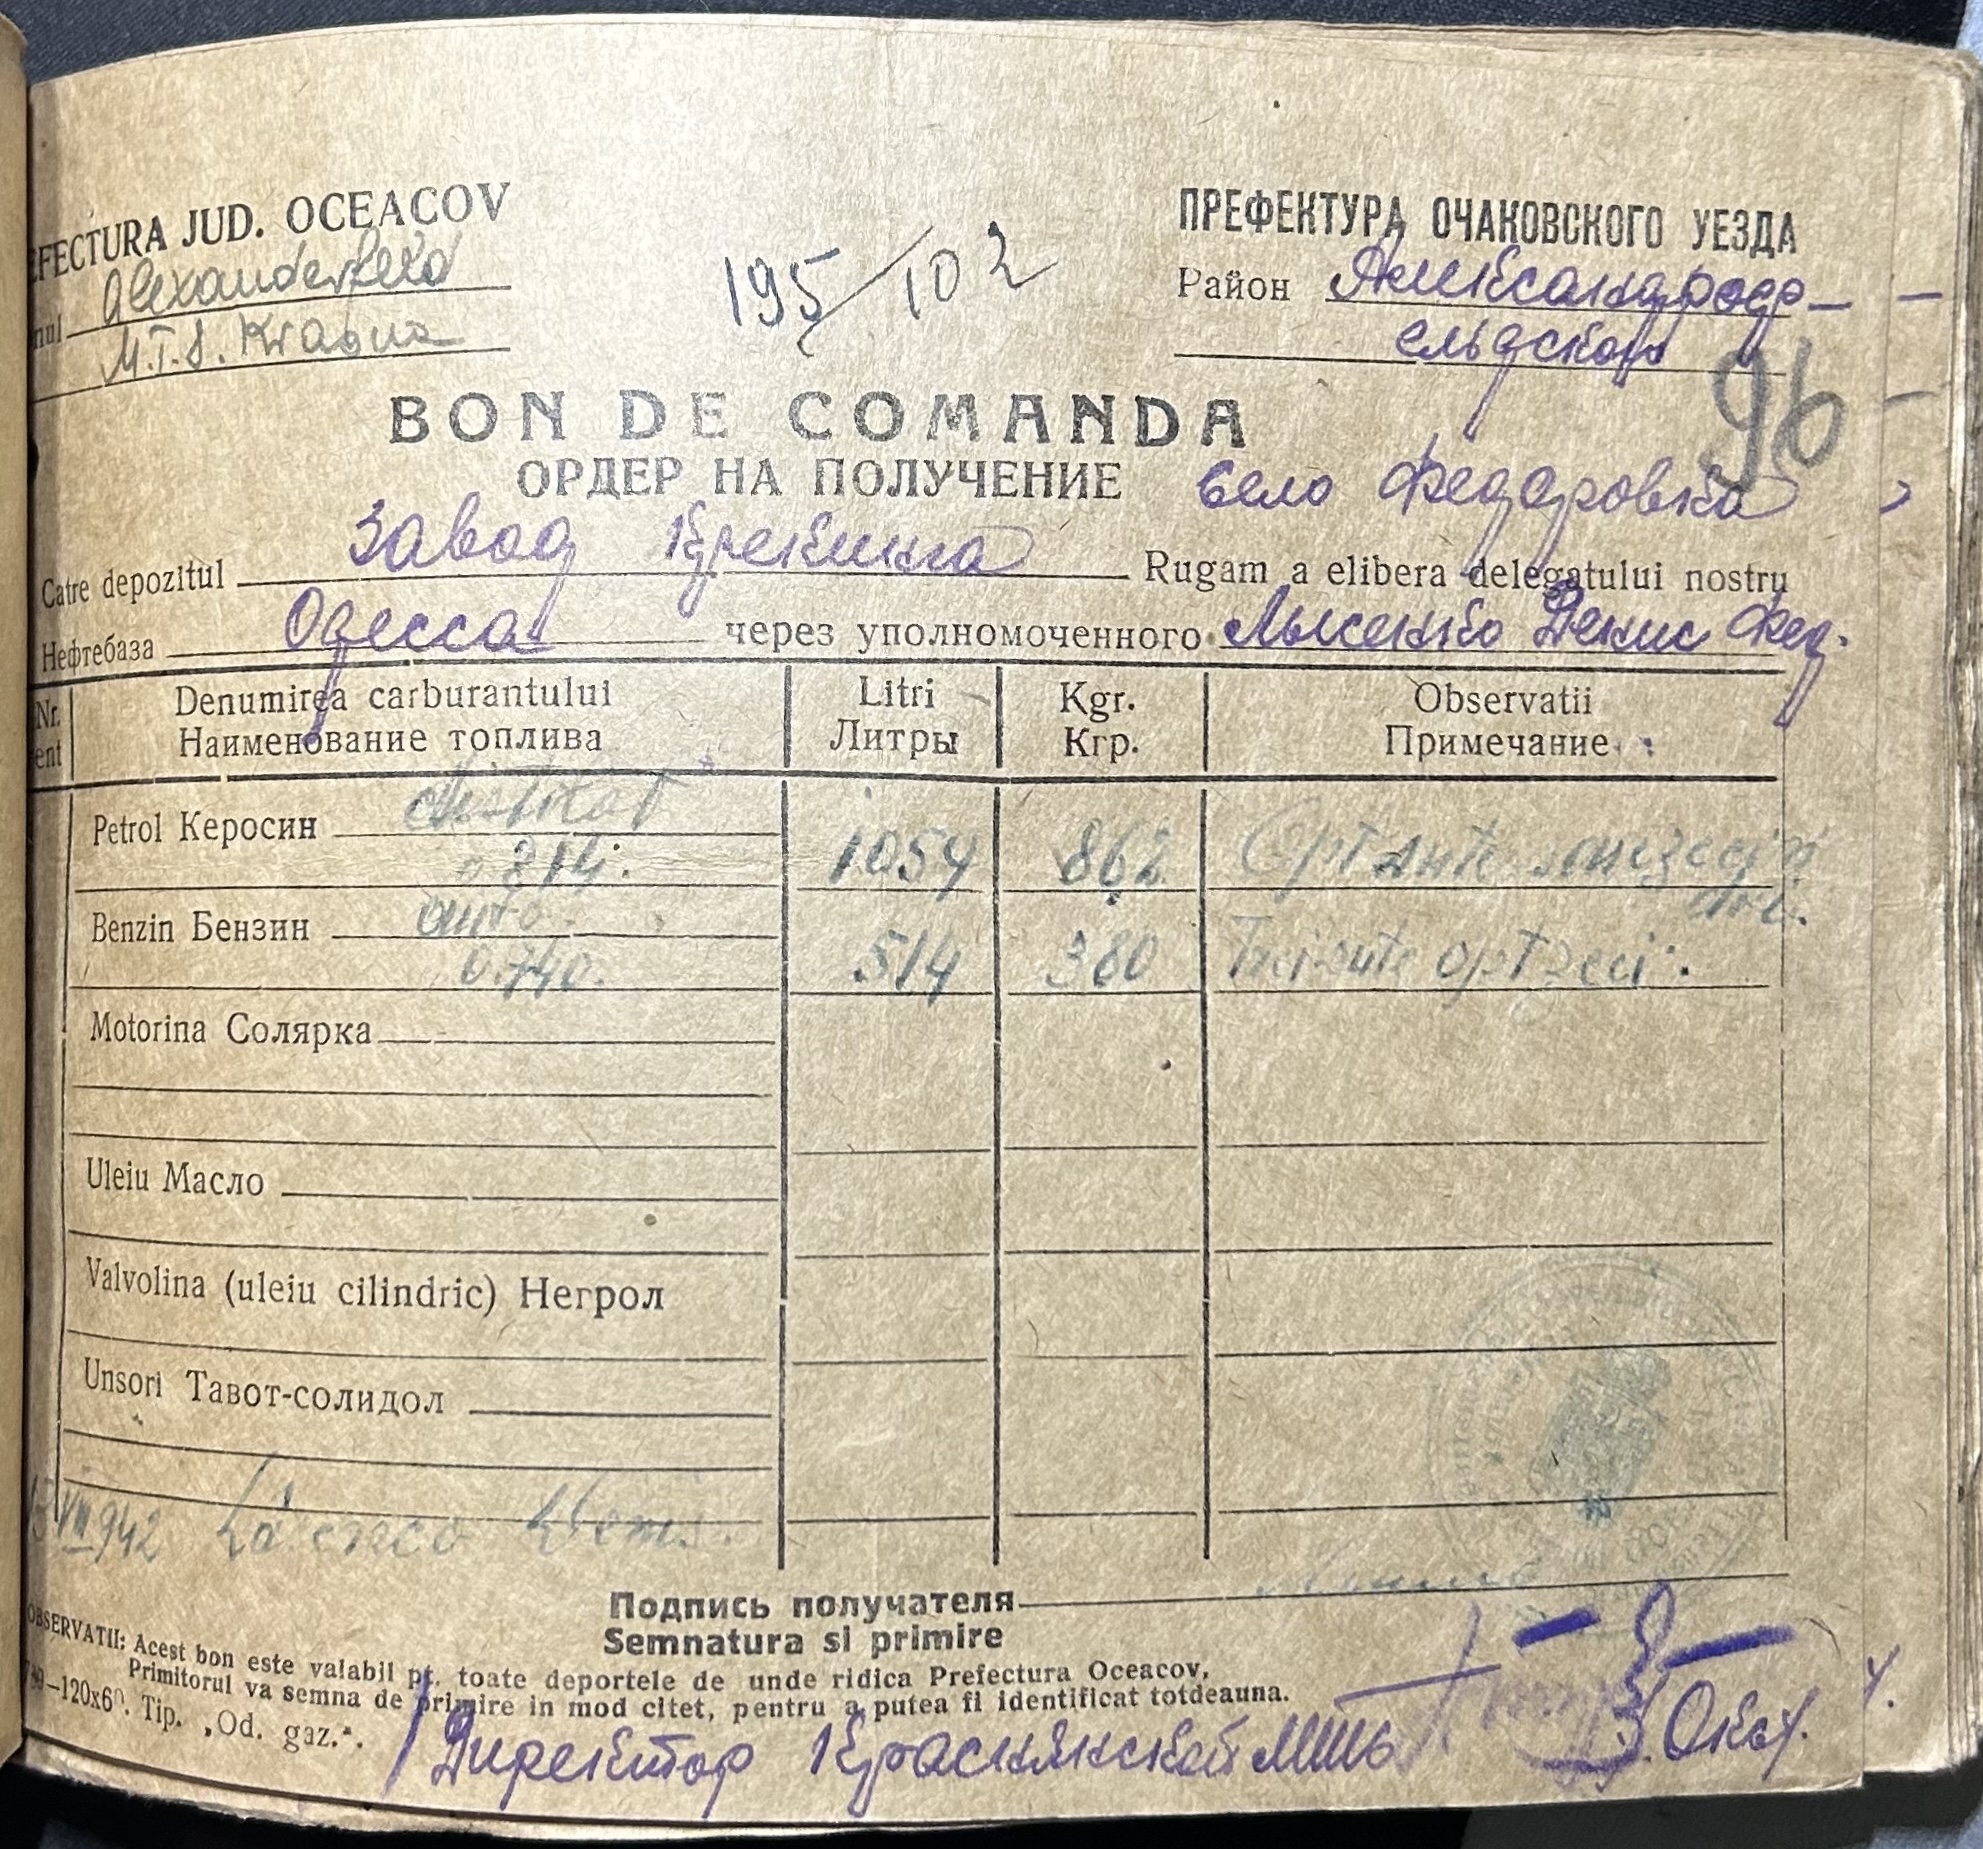 EFECTURA JUD. OCEACOV
nul Alexanderfeld
M.T.S. Krasna
195/102
ПРЕФЕКТУРА ОЧАКОВСКОГО УЕЗДА
Район Александроф-
ельдской
96
BON DE COMANDA
ОРДЕР НА ПОЛУЧЕНИЕ
Село Федоровка
Catre depozitul Завод Крекинга Rugam a elibera delegatului nostru
Нефтебаза Одесса через уполномоченного Лысенко Денис Фед.
Nr. Denumirea carburantului Litri Kgr. Observatii
ent Наименование топлива Литры Кгр. Примечание
Petrol Керосин distilat
0.814. 1054 862 Opt sute
Benzin Бензин auto
0.740. 514 380 Trei sute optzeci.
Motorina Солярка
Uleiu Масло
Valvolina (uleiu cilindric) Негрол
Unsori Тавот-солидол
VIII 942
Подпись получателя
Semnatura si primire
OBSERVATII: Acest bon este valabil pt. toate deportele de unde ridica Prefectura Oceacov,
Primitorul va semna de primire in mod citet, pentru a putea fi identificat totdeauna.
—120x6 . Tip. „Od. gaz.".
Директор Краснянской МТС